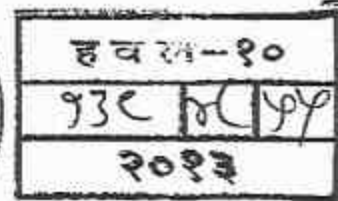 हवल-१०
१३८ ४८ ५५
२०१३